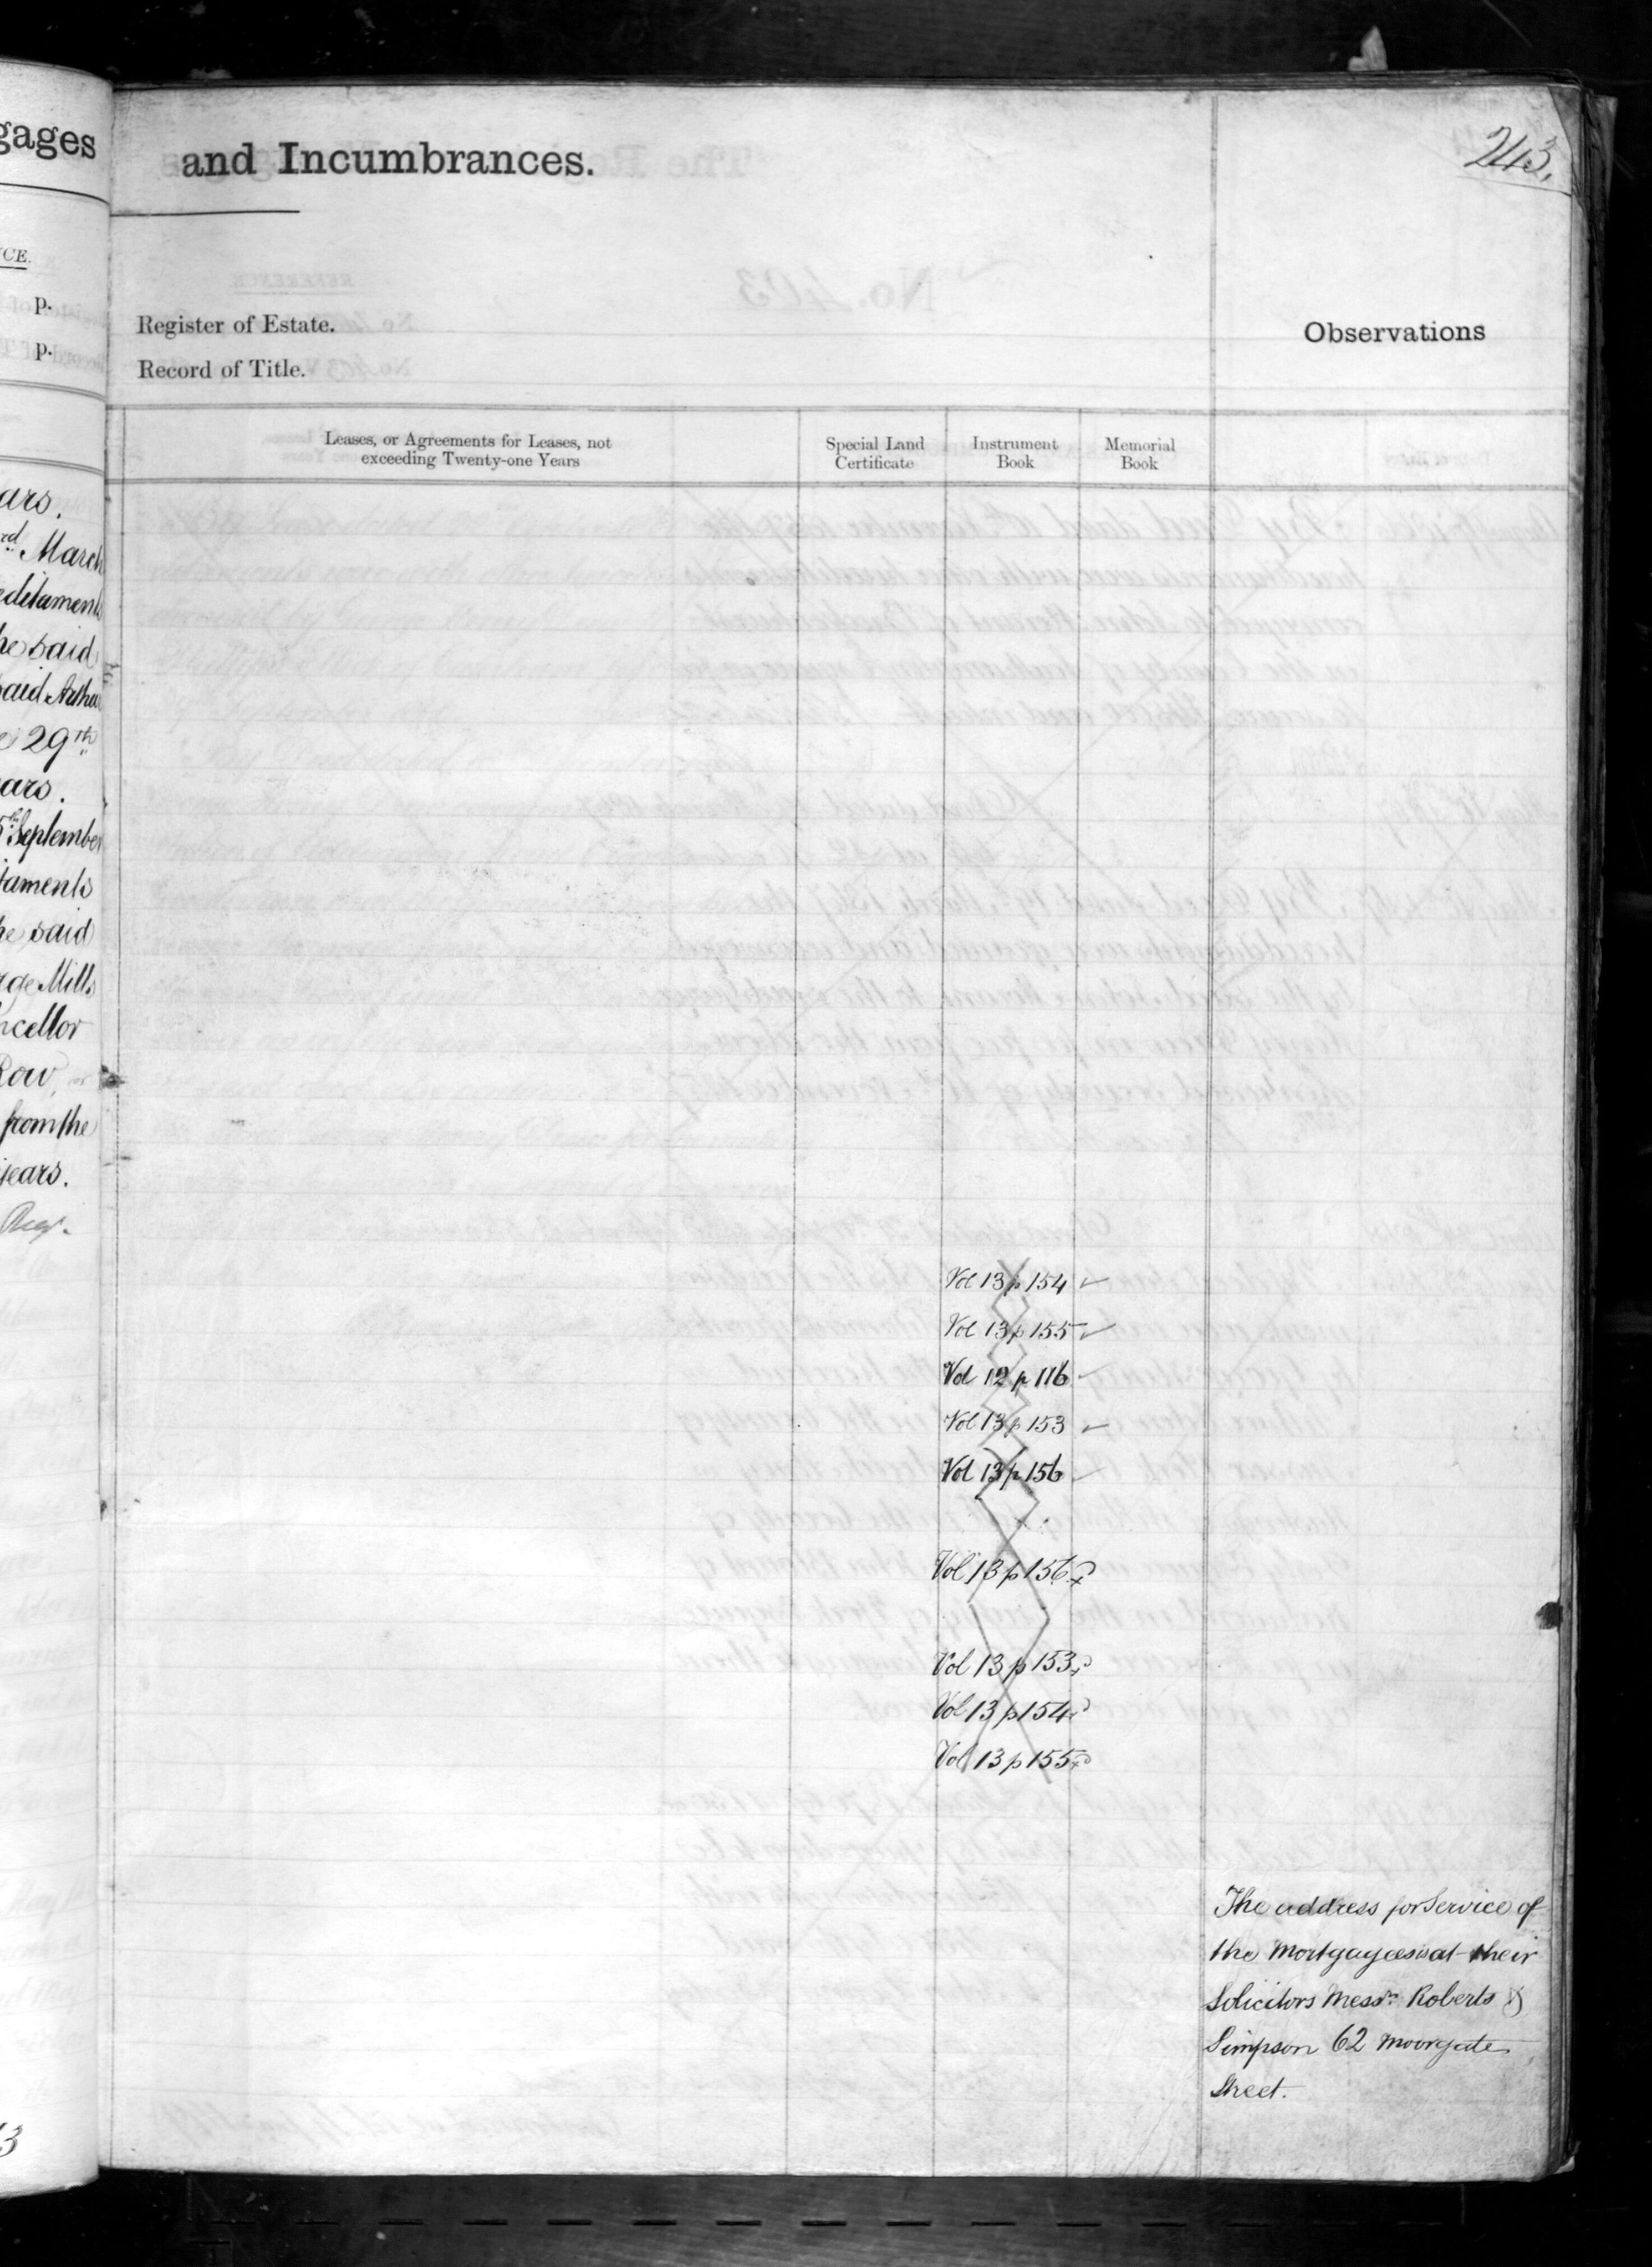 gages
CE.
p.
p.
ars.
rd March
editaments
he said
said Arthur
29th
ars.
5th September
taments
he said
rge Mills
ncellor
Row
from the
years.
Reg.
3
and Incumbrances.
243.
Register of Estate.
Record of Title.
Observations
Leases, or Agreements for Leases, not
exceeding Twenty-one Years
Special Land
Certificate
Instrument
Book
Memorial
Book
Vol 13 p 154
Vol 13 p 155
Vol 12 p 116
Vol 13 p 153
Vol 13 p 156
Vol 13 p 156
Vol 13 p 153
Vol 13 p 154
Vol 13 p 155
The address for Service of
the Mortgagees is at their
Solicitors Messrs. Roberts &
Simpson 62 Moorgate
Street.